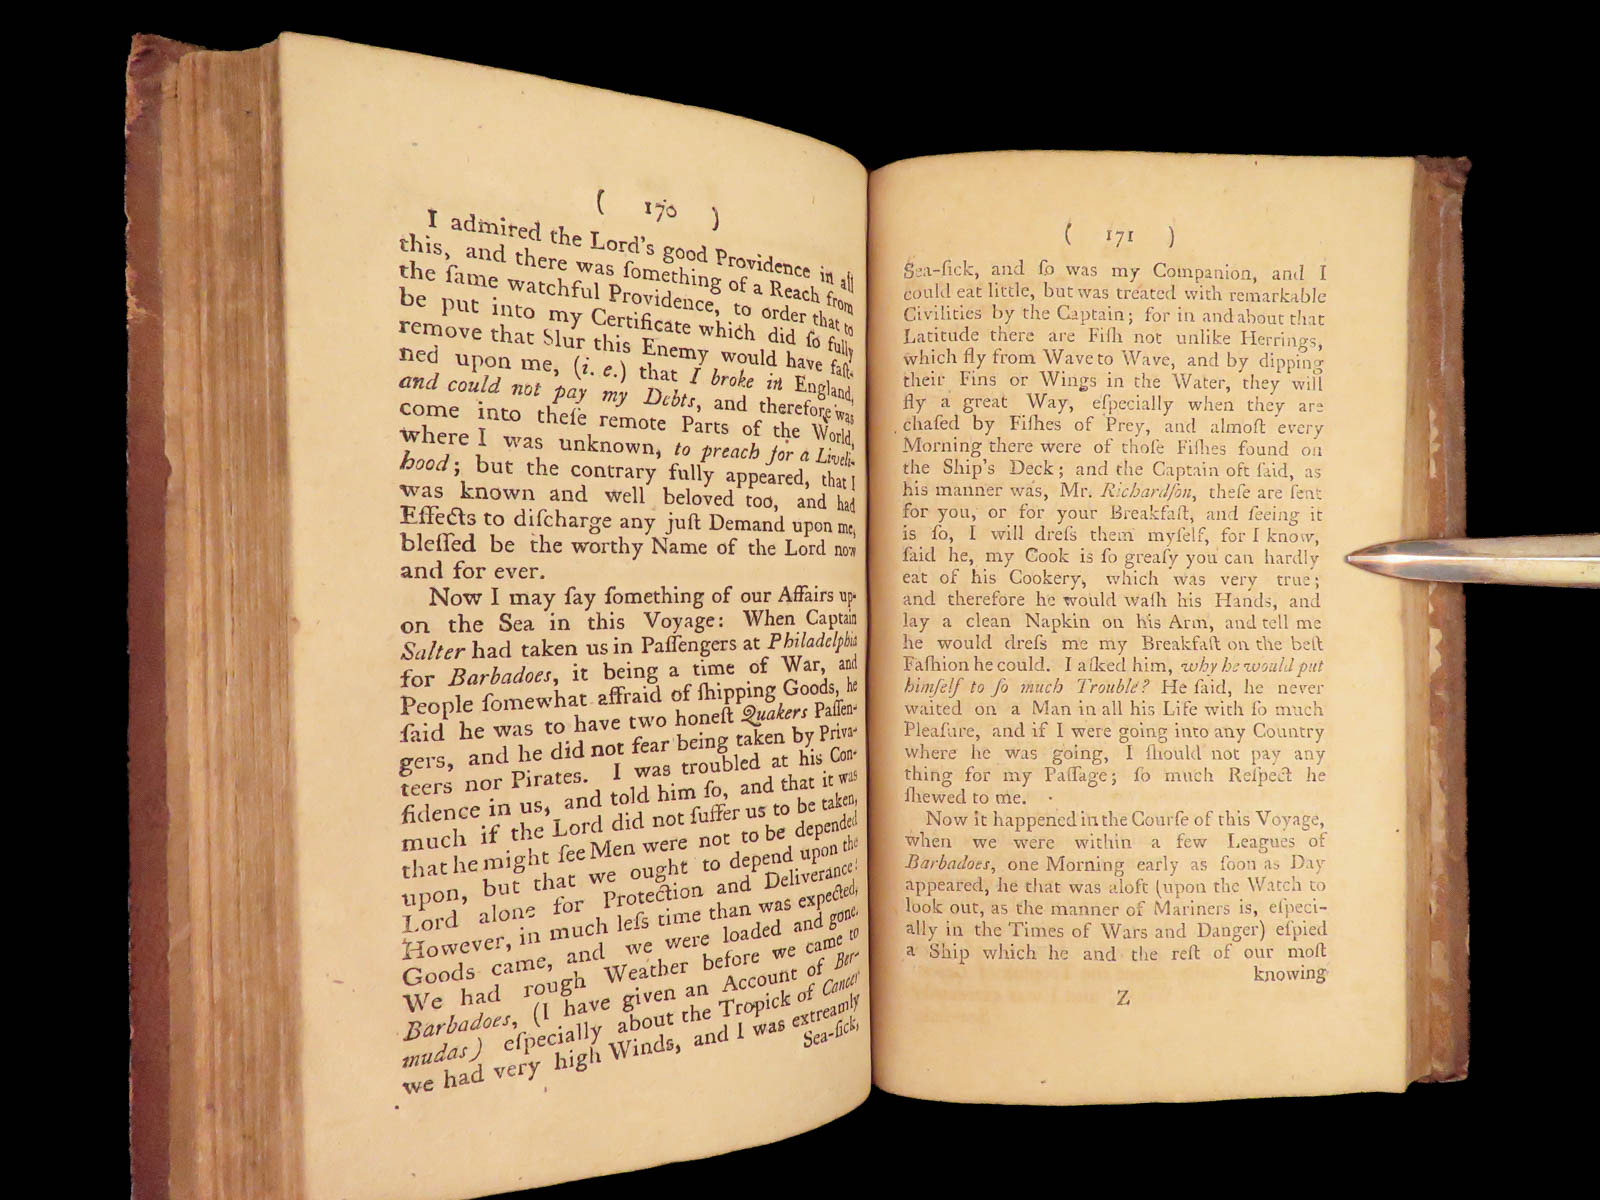 ( 170 )
I admired the Lord's good Providence in all
this, and there was ſomething of a Reach from
the ſame watchful Providence, to order that to
be put into my Certificate which did ſo fully
remove that Slur this Enemy would have faſt-
ned upon me, (i. e.) that I broke in England,
and could not pay my Debts, and therefore was
come into theſe remote Parts of the World,
where I was unknown, to preach for a Liveli-
hood; but the contrary fully appeared, that I
was known and well beloved too, and had
Effects to diſcharge any juſt Demand upon me,
bleſſed be the worthy Name of the Lord now
and for ever.
Now I may ſay ſomething of our Affairs up-
on the Sea in this Voyage: When Captain
Salter had taken us in Paſſengers at Philadelphia
for Barbadoes, it being a time of War, and
People ſomewhat affraid of ſhipping Goods, he
ſaid he was to have two honeſt Quakers Paſſen-
gers, and he did not fear being taken by Priva-
teers nor Pirates. I was troubled at his Con-
fidence in us, and told him ſo, and that it was
much if the Lord did not ſuffer us to be taken,
that he might ſee Men were not to be depended
upon, but that we ought to depend upon the
Lord alone for Protection and Deliverance:
However, in much leſs time than was expected,
Goods came, and we were loaded and gone.
We had rough Weather before we came to
Barbadoes, (I have given an Account of Ber-
mudas) eſpecially about the Tropick of Cancer
we had very high Winds, and I was extreamly
Sea-ſick,
( 171 )
Sea-ſick, and ſo was my Companion, and I
could eat little, but was treated with remarkable
Civilities by the Captain; for in and about that
Latitude there are Fiſh not unlike Herrings,
which fly from Wave to Wave, and by dipping
their Fins or Wings in the Water, they will
fly a great Way, eſpecially when they are
chaſed by Fiſhes of Prey, and almoſt every
Morning there were of thoſe Fiſhes found on
the Ship's Deck; and the Captain oft ſaid, as
his manner was, Mr. Richardſon, theſe are ſent
for you, or for your Breakfaſt, and ſeeing it
is ſo, I will dreſs them myſelf, for I know,
ſaid he, my Cook is ſo greaſy you can hardly
eat of his Cookery, which was very true;
and therefore he would waſh his Hands, and
lay a clean Napkin on his Arm, and tell me
he would dreſs me my Breakfaſt on the beſt
Faſhion he could. I aſked him, why he would put
himſelf to ſo much Trouble? He ſaid, he never
waited on a Man in all his Life with ſo much
Pleaſure, and if I were going into any Country
where he was going, I ſhould not pay any
thing for my Paſſage; ſo much Reſpect he
ſhewed to me.
Now it happened in the Courſe of this Voyage,
when we were within a few Leagues of
Barbadoes, one Morning early as ſoon as Day
appeared, he that was aloft (upon the Watch to
look out, as the manner of Mariners is, eſpeci-
ally in the Times of Wars and Danger) eſpied
a Ship which he and the reſt of our moſt
knowing
Z